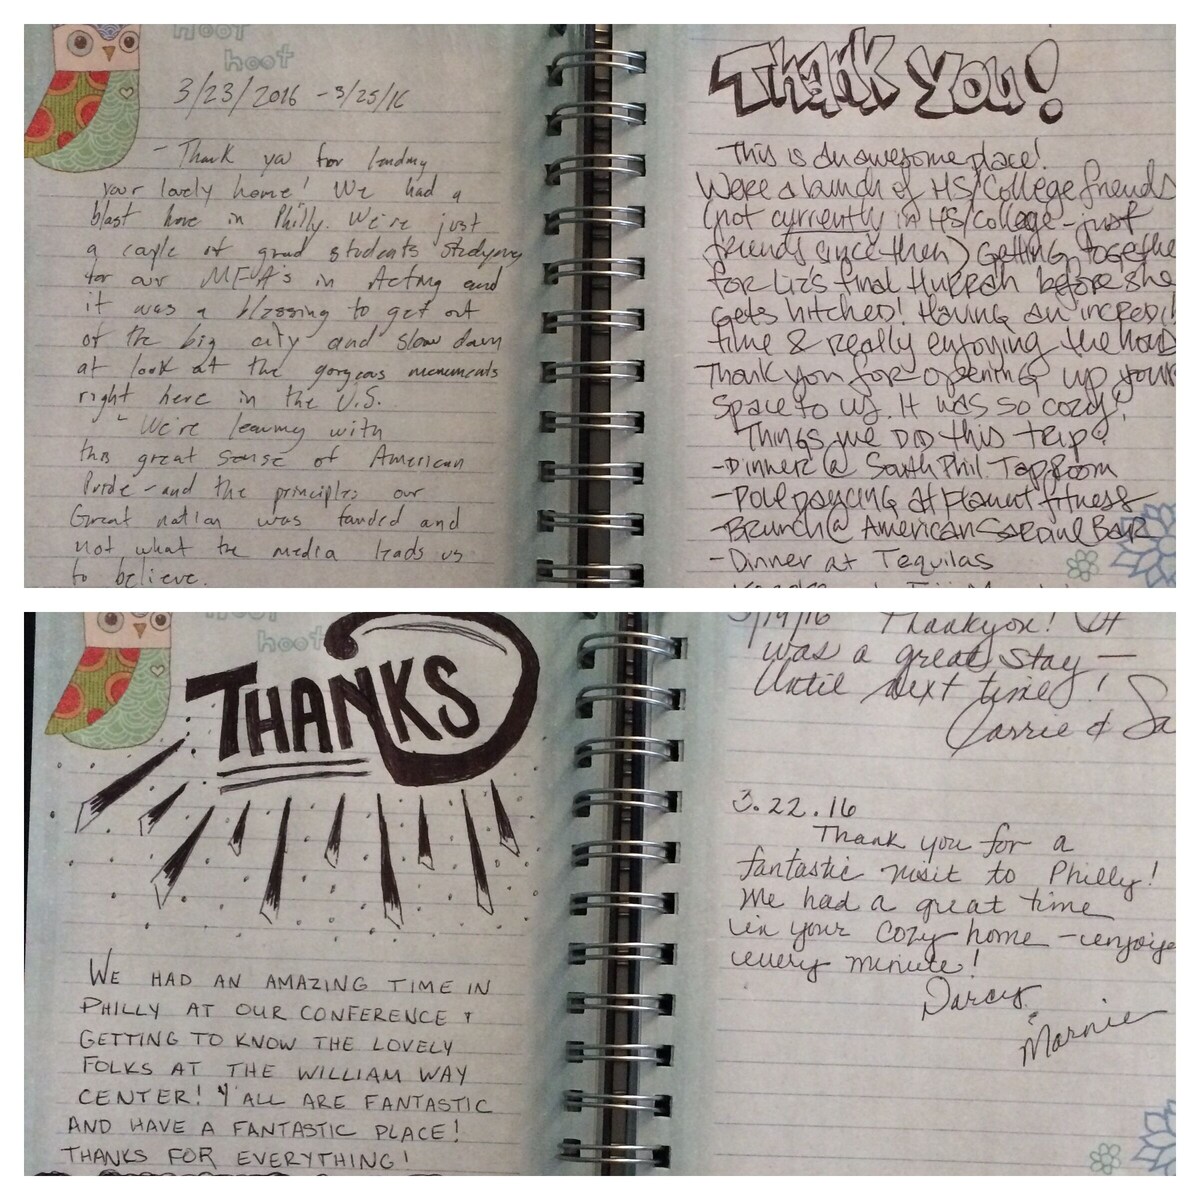 hoot
hoot
3/23/2016 - 3/25/16
- Thank you for lending
your lovely home! We had a
blast here in Philly. We're just
a couple of grad students studying
for our MFA's in Acting and
it was a blessing to get out
of the big city and slow down
at look at the gorgeous monuments
right here in the U.S.
- We're leaving with
this great sense of American
Pride - and the principles our
Great nation was founded and
not what the media leads us
to believe.
THANK YOU!
This is an awesome place!
We're a bunch of HS/College friends
(not currently in HS/College - just
friends since then) Getting togethe
for Liz's final Hurrah before she
gets hitched! Having an incredi
time & really enjoying the
Thank you for opening up your
space to us. It was so cozy!
Things we DID this trip:
- Dinner @ South Phil Tap Room
- Pole Dancing at Planet Fitness
- Brunch @ American Sardine Bar
- Dinner at Tequilas
hoot
hoot
THANKS
WE HAD AN AMAZING TIME IN
PHILLY AT OUR CONFERENCE +
GETTING TO KNOW THE LOVELY
FOLKS AT THE WILLIAM WAY
CENTER! Y'ALL ARE FANTASTIC
AND HAVE A FANTASTIC PLACE!
THANKS FOR EVERYTHING!
3/19/16 Thankyou! It
was a great stay —
Until next time!
Carrie & Sa
3.22.16
Thank you for a
fantastic visit to Philly!
We had a great time
in your cozy home - enjoye
every minute!
Darcy
Marnie